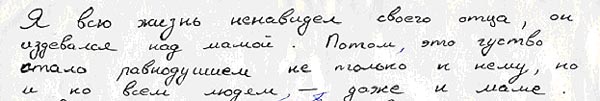 Я всю жизнь ненавидел своего отца, он
издевался над мамой. Потом, это чуство
стало равнодушием не только к нему, но
и ко всем людем, – даже и маме.